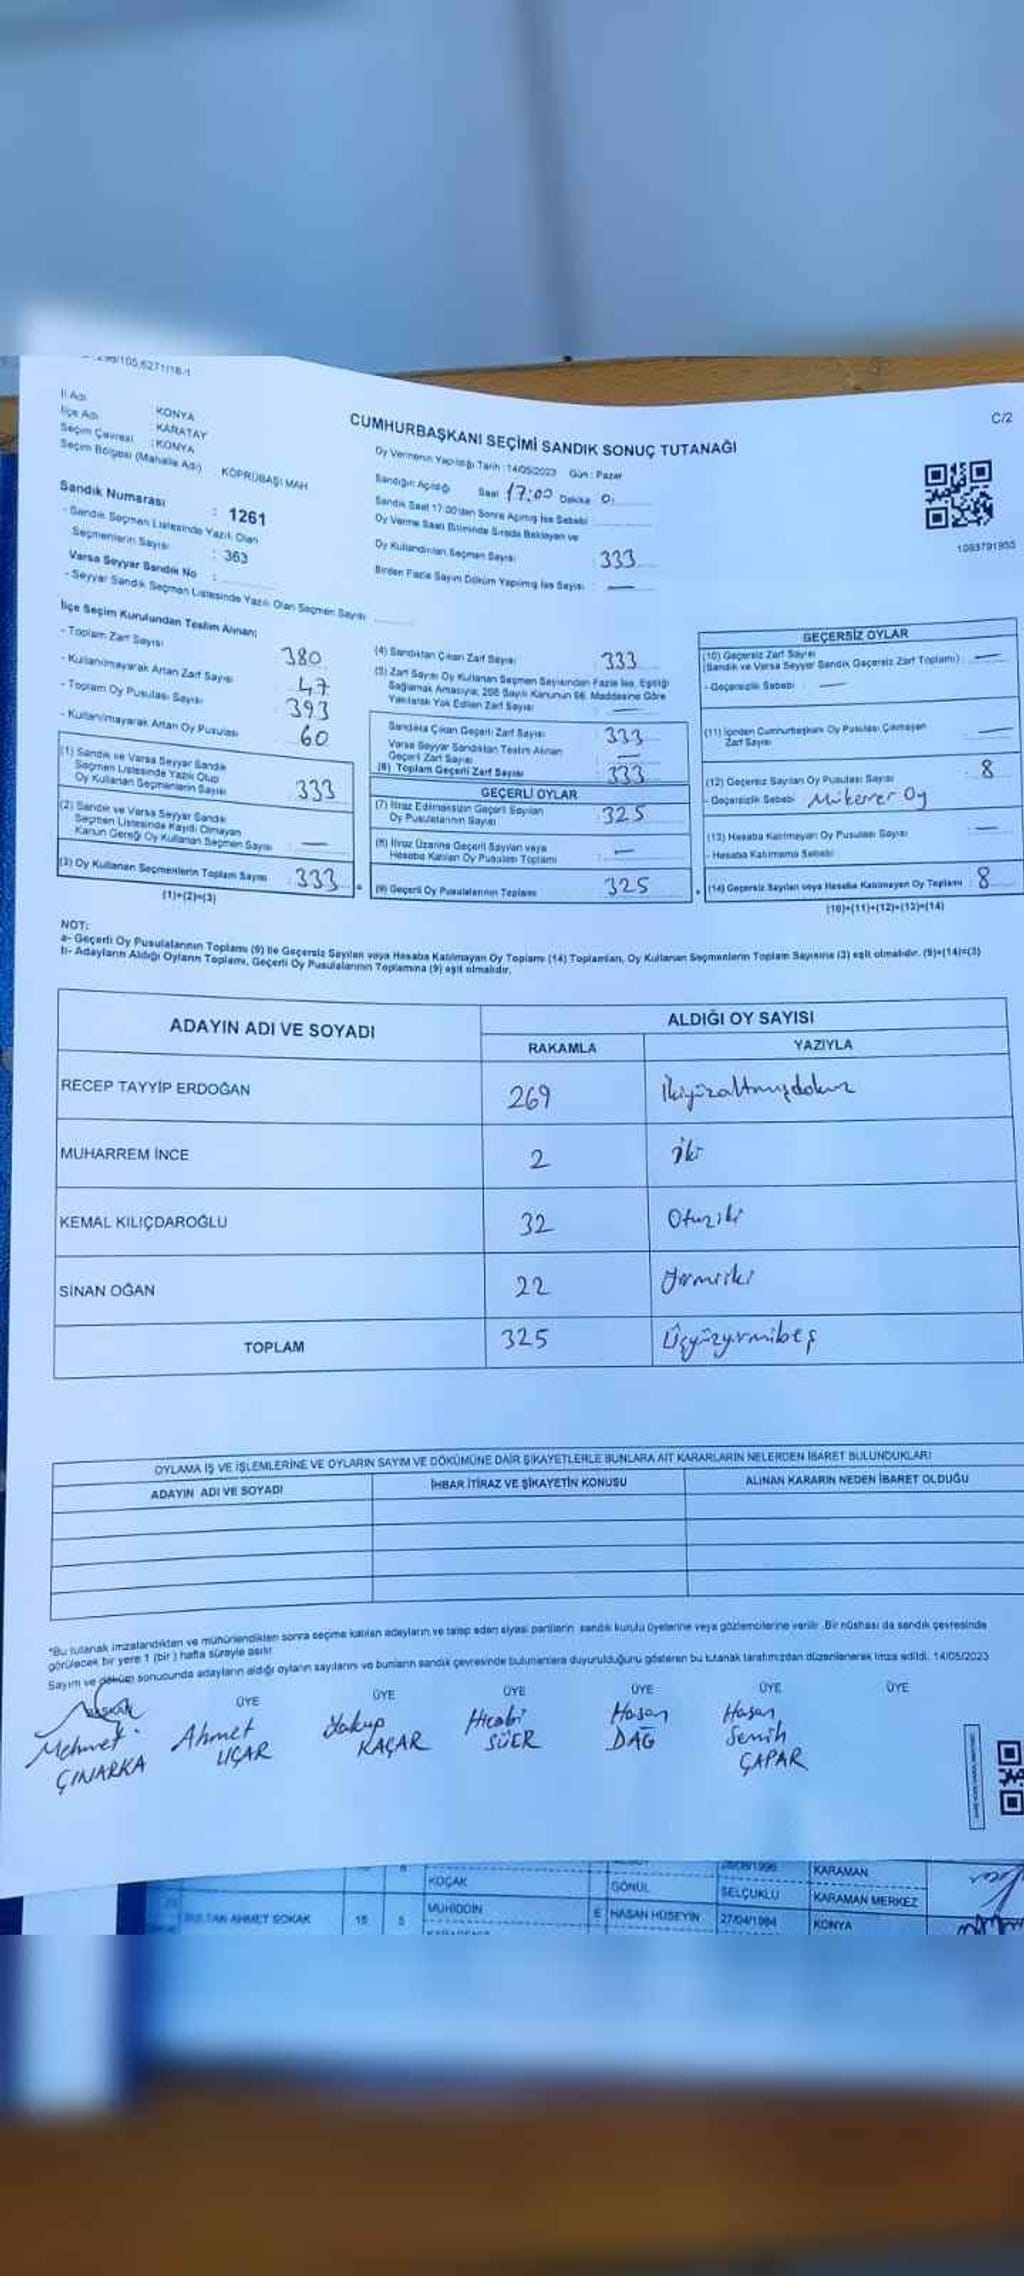 C/2
İl Adı KONYA
İlçe Adı KARATAY
Seçim Çevresi : KONYA
Seçim Bölgesi (Mahalle Adı) KÖPRÜBAŞI MAH
Sandık Numarası : 1261
- Sandık Seçmen Listesinde Yazılı Olan
Seçmenlerin Sayısı : 363
Varsa Seyyar Sandık No :
- Seyyar Sandık Seçmen Listesinde Yazılı Olan Seçmen Sayısı
CUMHURBAŞKANI SEÇİMİ SANDIK SONUÇ TUTANAĞI
Oy Vermenin Yapıldığı Tarih : 14/05/2023 Gün : Pazar
Sandığın Açıldığı Saat 17:00 Dakika 0
Sandık Saat 17.00'den Sonra Açılmış İse Sebebi
Oy Verme Saati Bitiminde Sırada Bekleyen ve
Oy Kullandırılan Seçmen Sayısı 333
Birden Fazla Sayım Döküm Yapılmış İse Sayısı —
1093791955
İlçe Seçim Kurulundan Teslim Alınan;
- Toplam Zarf Sayısı 380
- Kullanılmayarak Artan Zarf Sayısı 47
- Toplam Oy Pusulası Sayısı 393
- Kullanılmayarak Artan Oy Pusulası 60
(1) Sandık ve Varsa Seyyar Sandık
Seçmen Listesinde Yazılı Olup
Oy Kullanan Seçmenlerin Sayısı 333
(2) Sandık ve Varsa Seyyar Sandık
Seçmen Listesinde Kaydı Olmayan
Kanun Gereği Oy Kullanan Seçmen Sayısı : —
(3) Oy Kullanan Seçmenlerin Toplam Sayısı : 333
(1)+(2)=(3)
(4) Sandıktan Çıkan Zarf Sayısı : 333
(5) Zarf Sayısı Oy Kullanan Seçmen Sayısından Fazla İse, Eşitliği
Sağlamak Amacıyla, 298 Sayılı Kanunun 98. Maddesine Göre
Yakılarak Yok Edilen Zarf Sayısı : —
Sandıkta Çıkan Geçerli Zarf Sayısı : 333
Varsa Seyyar Sandıktan Teslim Alınan
Geçerli Zarf Sayısı : —
(6) Toplam Geçerli Zarf Sayısı : 333
GEÇERLİ OYLAR
(7) İtiraz Edilmeksizin Geçerli Sayılan
Oy Pusulalarının Sayısı : 325
(8) İtiraz Üzerine Geçerli Sayılan veya
Hesaba Katılan Oy Pusulası Toplamı : —
(9) Geçerli Oy Pusulalarının Toplamı : 325
GEÇERSİZ OYLAR
(10) Geçersiz Zarf Sayısı
(Sandık ve Varsa Seyyar Sandık Geçersiz Zarf Toplamı) : —
- Geçersizlik Sebebi : —
(11) İçinden Cumhurbaşkanı Oy Pusulası Çıkmayan
Zarf Sayısı —
(12) Geçersiz Sayılan Oy Pusulası Sayısı : 8
- Geçersizlik Sebebi Mükerrer Oy
(13) Hesaba Katılmayan Oy Pusulası Sayısı : —
- Hesaba Katılmama Sebebi
(14) Geçersiz Sayılan veya Hesaba Katılmayan Oy Toplamı : 8
(10)+(11)+(12)+(13)=(14)
NOT:
a- Geçerli Oy Pusulalarının Toplamı (9) ile Geçersiz Sayılan veya Hesaba Katılmayan Oy Toplamı (14) Toplamları, Oy Kullanan Seçmenlerin Toplam Sayısına (3) eşit olmalıdır. (9)+(14)=(3)
b- Adayların Aldığı Oyların Toplamı, Geçerli Oy Pusulalarının Toplamına (9) eşit olmalıdır.
ADAYIN ADI VE SOYADI ALDIĞI OY SAYISI
RAKAMLA YAZIYLA
RECEP TAYYİP ERDOĞAN 269 İkiyüzaltmışdokuz
MUHARREM İNCE 2 iki
KEMAL KILIÇDAROĞLU 32 Otuziki
SİNAN OĞAN 22 Yirmiiki
TOPLAM 325 Üçyüzyirmibeş
OYLAMA İŞ VE İŞLEMLERİNE VE OYLARIN SAYIM VE DÖKÜMÜNE DAİR ŞİKAYETLERLE BUNLARA AİT KARARLARIN NELERDEN İBARET BULUNDUKLARI
ADAYIN ADI VE SOYADI İHBAR İTİRAZ VE ŞİKAYETİN KONUSU ALINAN KARARIN NEDEN İBARET OLDUĞU
*Bu tutanak imzalandıktan ve mühürlendikten sonra seçime katılan adayların ve talep eden siyasi partilerin sandık kurulu üyelerine veya gözlemcilerine verilir. Bir nüshası da sandık çevresinde
görülecek bir yere 1 (bir) hafta süreyle asılır.
Sayım ve döküm sonucunda adayların aldığı oyların sayılarını ve bunların sandık çevresinde bulunanlara duyurulduğunu gösteren bu tutanak tarafımızdan düzenlenerek imza edildi. 14/05/2023
ÜYE ÜYE ÜYE ÜYE ÜYE ÜYE
Mehmet ÇINARKA
Ahmet UÇAR
Yakup KAÇAR
Hicabi SÜER
Hasan DAĞ
Hasan Semih ÇAPAR
KOÇAK GÖNÜL SELÇUKLU KARAMAN
KARAMAN MERKEZ
SULTAN AHMET SOKAK 16 5 MUHİDDİN E HASAN HÜSEYİN 27/04/1984 KONYA